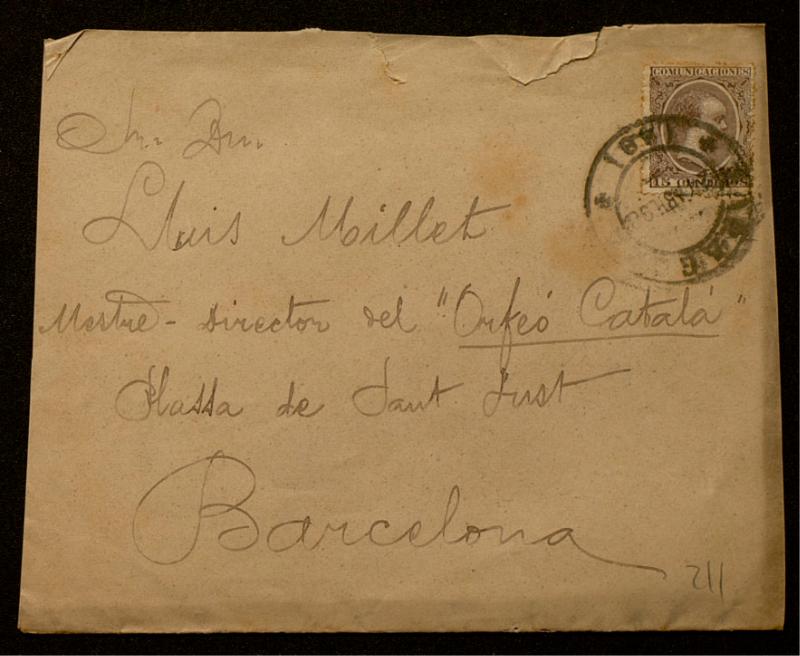 COMUNICACIONES
15 CENTIMOS
Sr. Dn.
Lluis Millet
Mestre-Director del "Orfeó Catalá"
Plassa de Sant Just
Barcelona
211